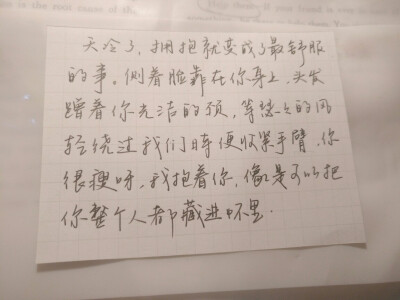 天冷了，拥抱就变成了最舒服
的事。侧着脸靠在你身上，头发
蹭着你光洁的颈，等悠悠的风
轻绕过我们时便收紧手臂，你
很瘦呀，我抱着你，像是可以把
你整个人都藏进怀里.